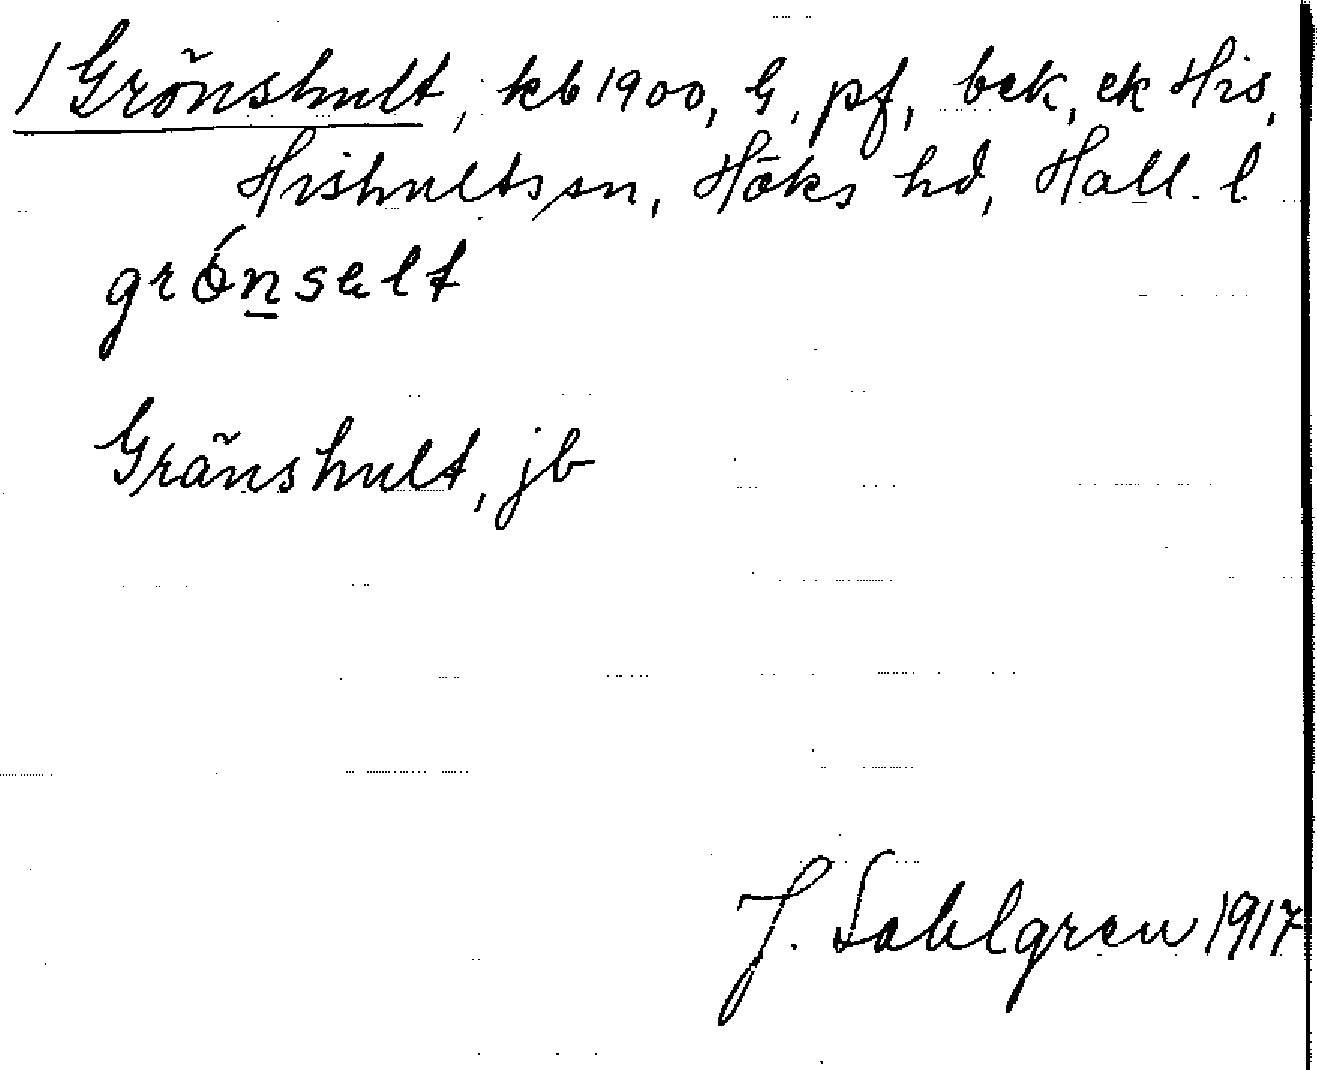 1 Grönshult, kb 1900, G. pf, bek, ek His,
Hishults sn, Höks hd, Hall. l
grǿn̲selt
Gränshult, jb
J. Sahlgren 1917